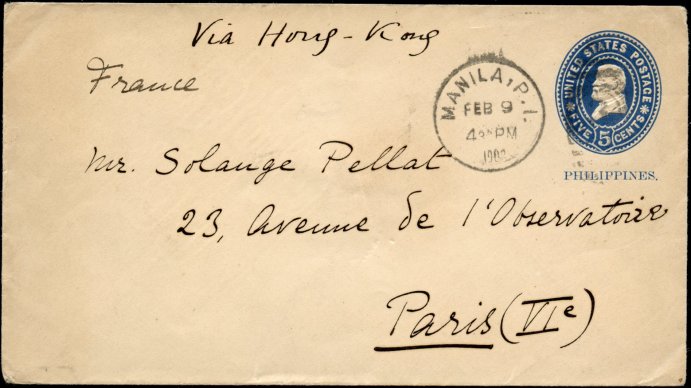 Via Hong-Kong
France
Mr. Solange Pellat
23, Avenue de l'Observatoire
Paris (VIe)
MANILA, P.I.
FEB 9
PM
UNITED STATES POSTAGE
FIVE 5 CENTS
PHILIPPINES.